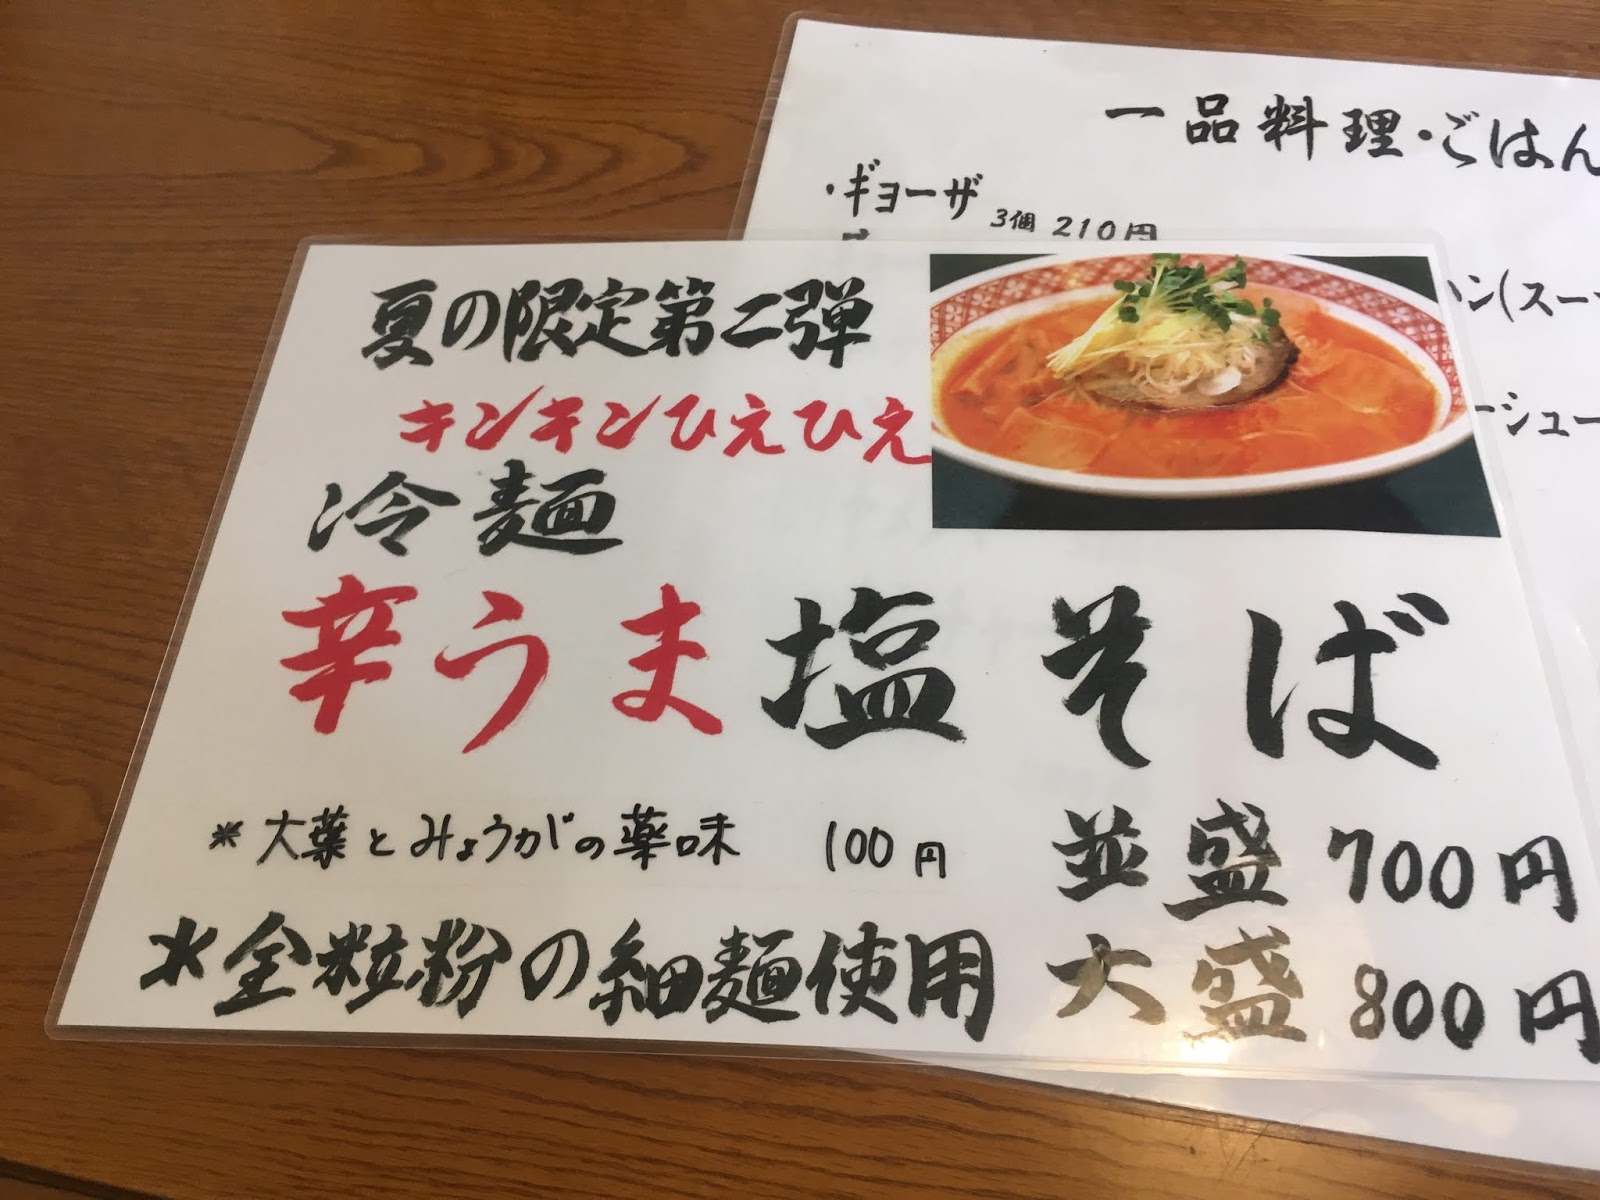 一品料理・ごはん
・ギョーザ 3個 210円
ハン(スー
ーシュー
夏の限定第二弾
キンキンひえひえ
冷麺
辛うま塩そば
＊大葉とみょうがの薬味 100円
並盛 700円
＊全粒粉の細麺使用
大盛 800円